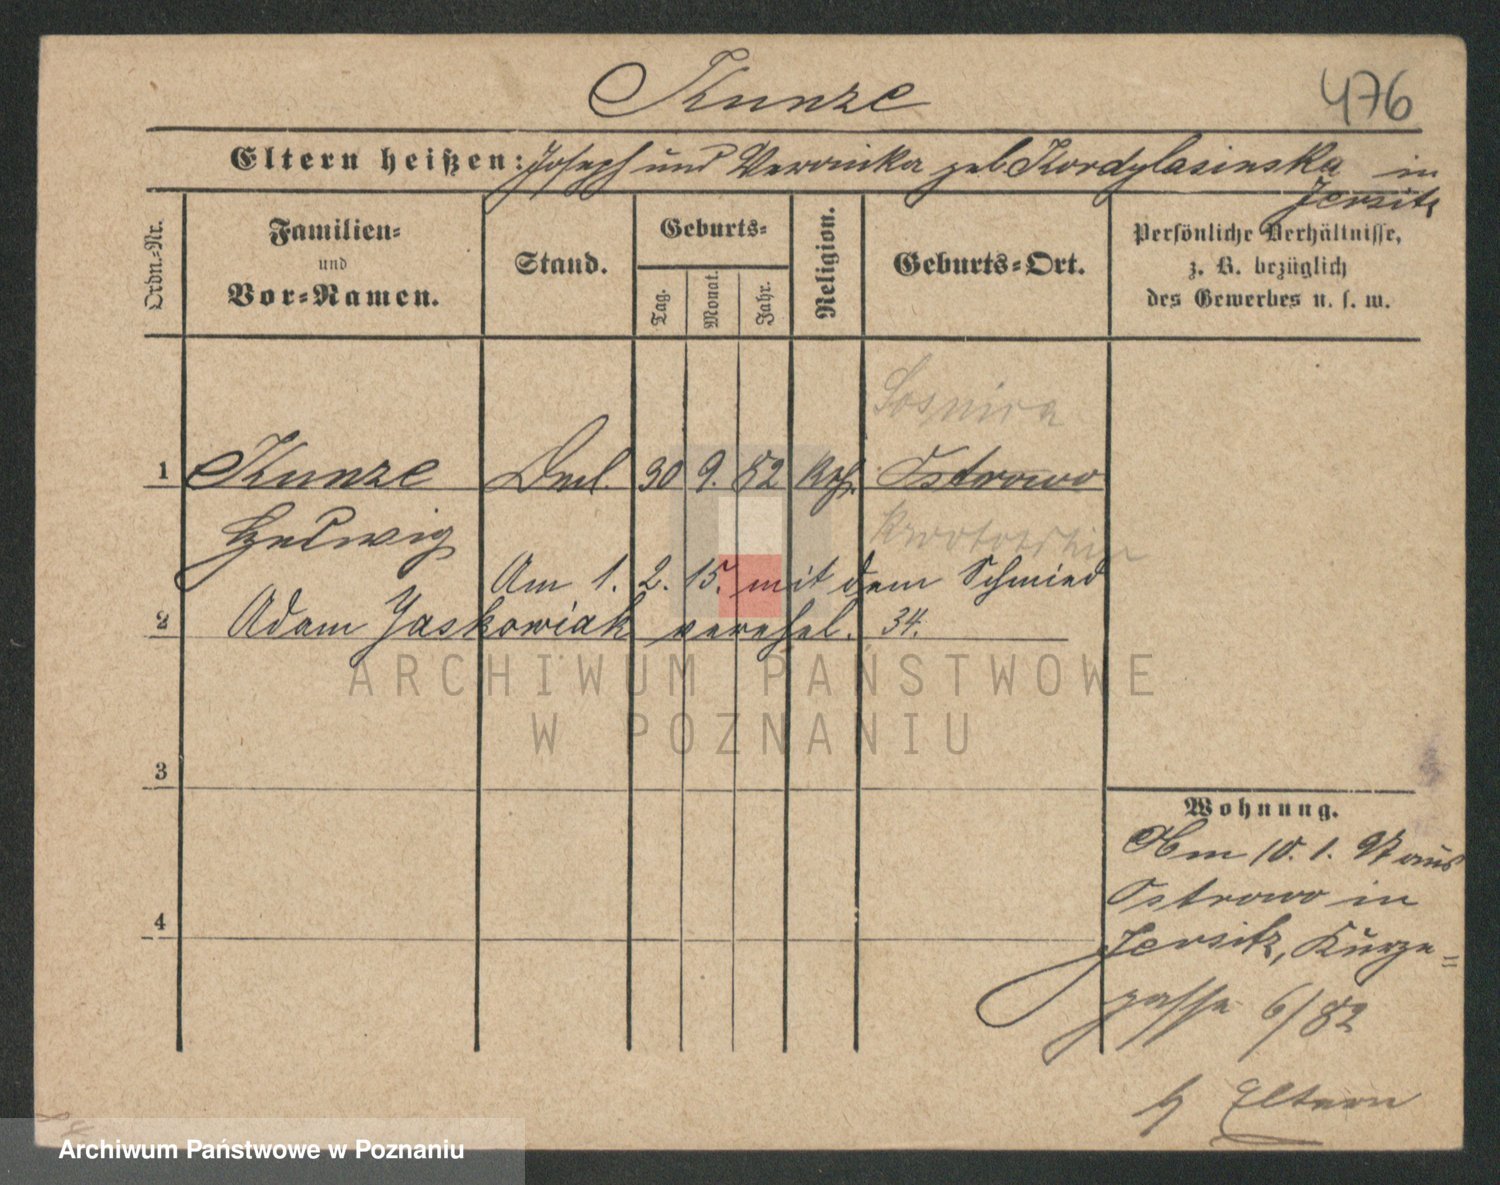 Kunze
476
Eltern heißen: Joseph und Veronika geb Kordylasinska in
Jersitz
Ordn.-Nr.
Familien-
und
Vor-Namen.
Stand.
Geburts-
Tag.
Monat.
Jahr.
Religion.
Geburts-Ort.
Persönliche Verhältnisse,
z. B. bezüglich
des Gewerbes u. s. w.
Sosnica
1 Kunze 30 9. 82 kth. Ostrowo
Hedwig
Krotoschin
Am 1. 2. 15. mit dem Schmied
2 Adam Jaskowiak verehel. 34.
3
4
Wohnung.
10. 1. 97 aus
Ostrowo in
Jersitz, Kurze-
gasse 6/82
b Eltern
ARCHIWUM PAŃSTWOWE
W POZNANIU
Archiwum Państwowe w Poznaniu